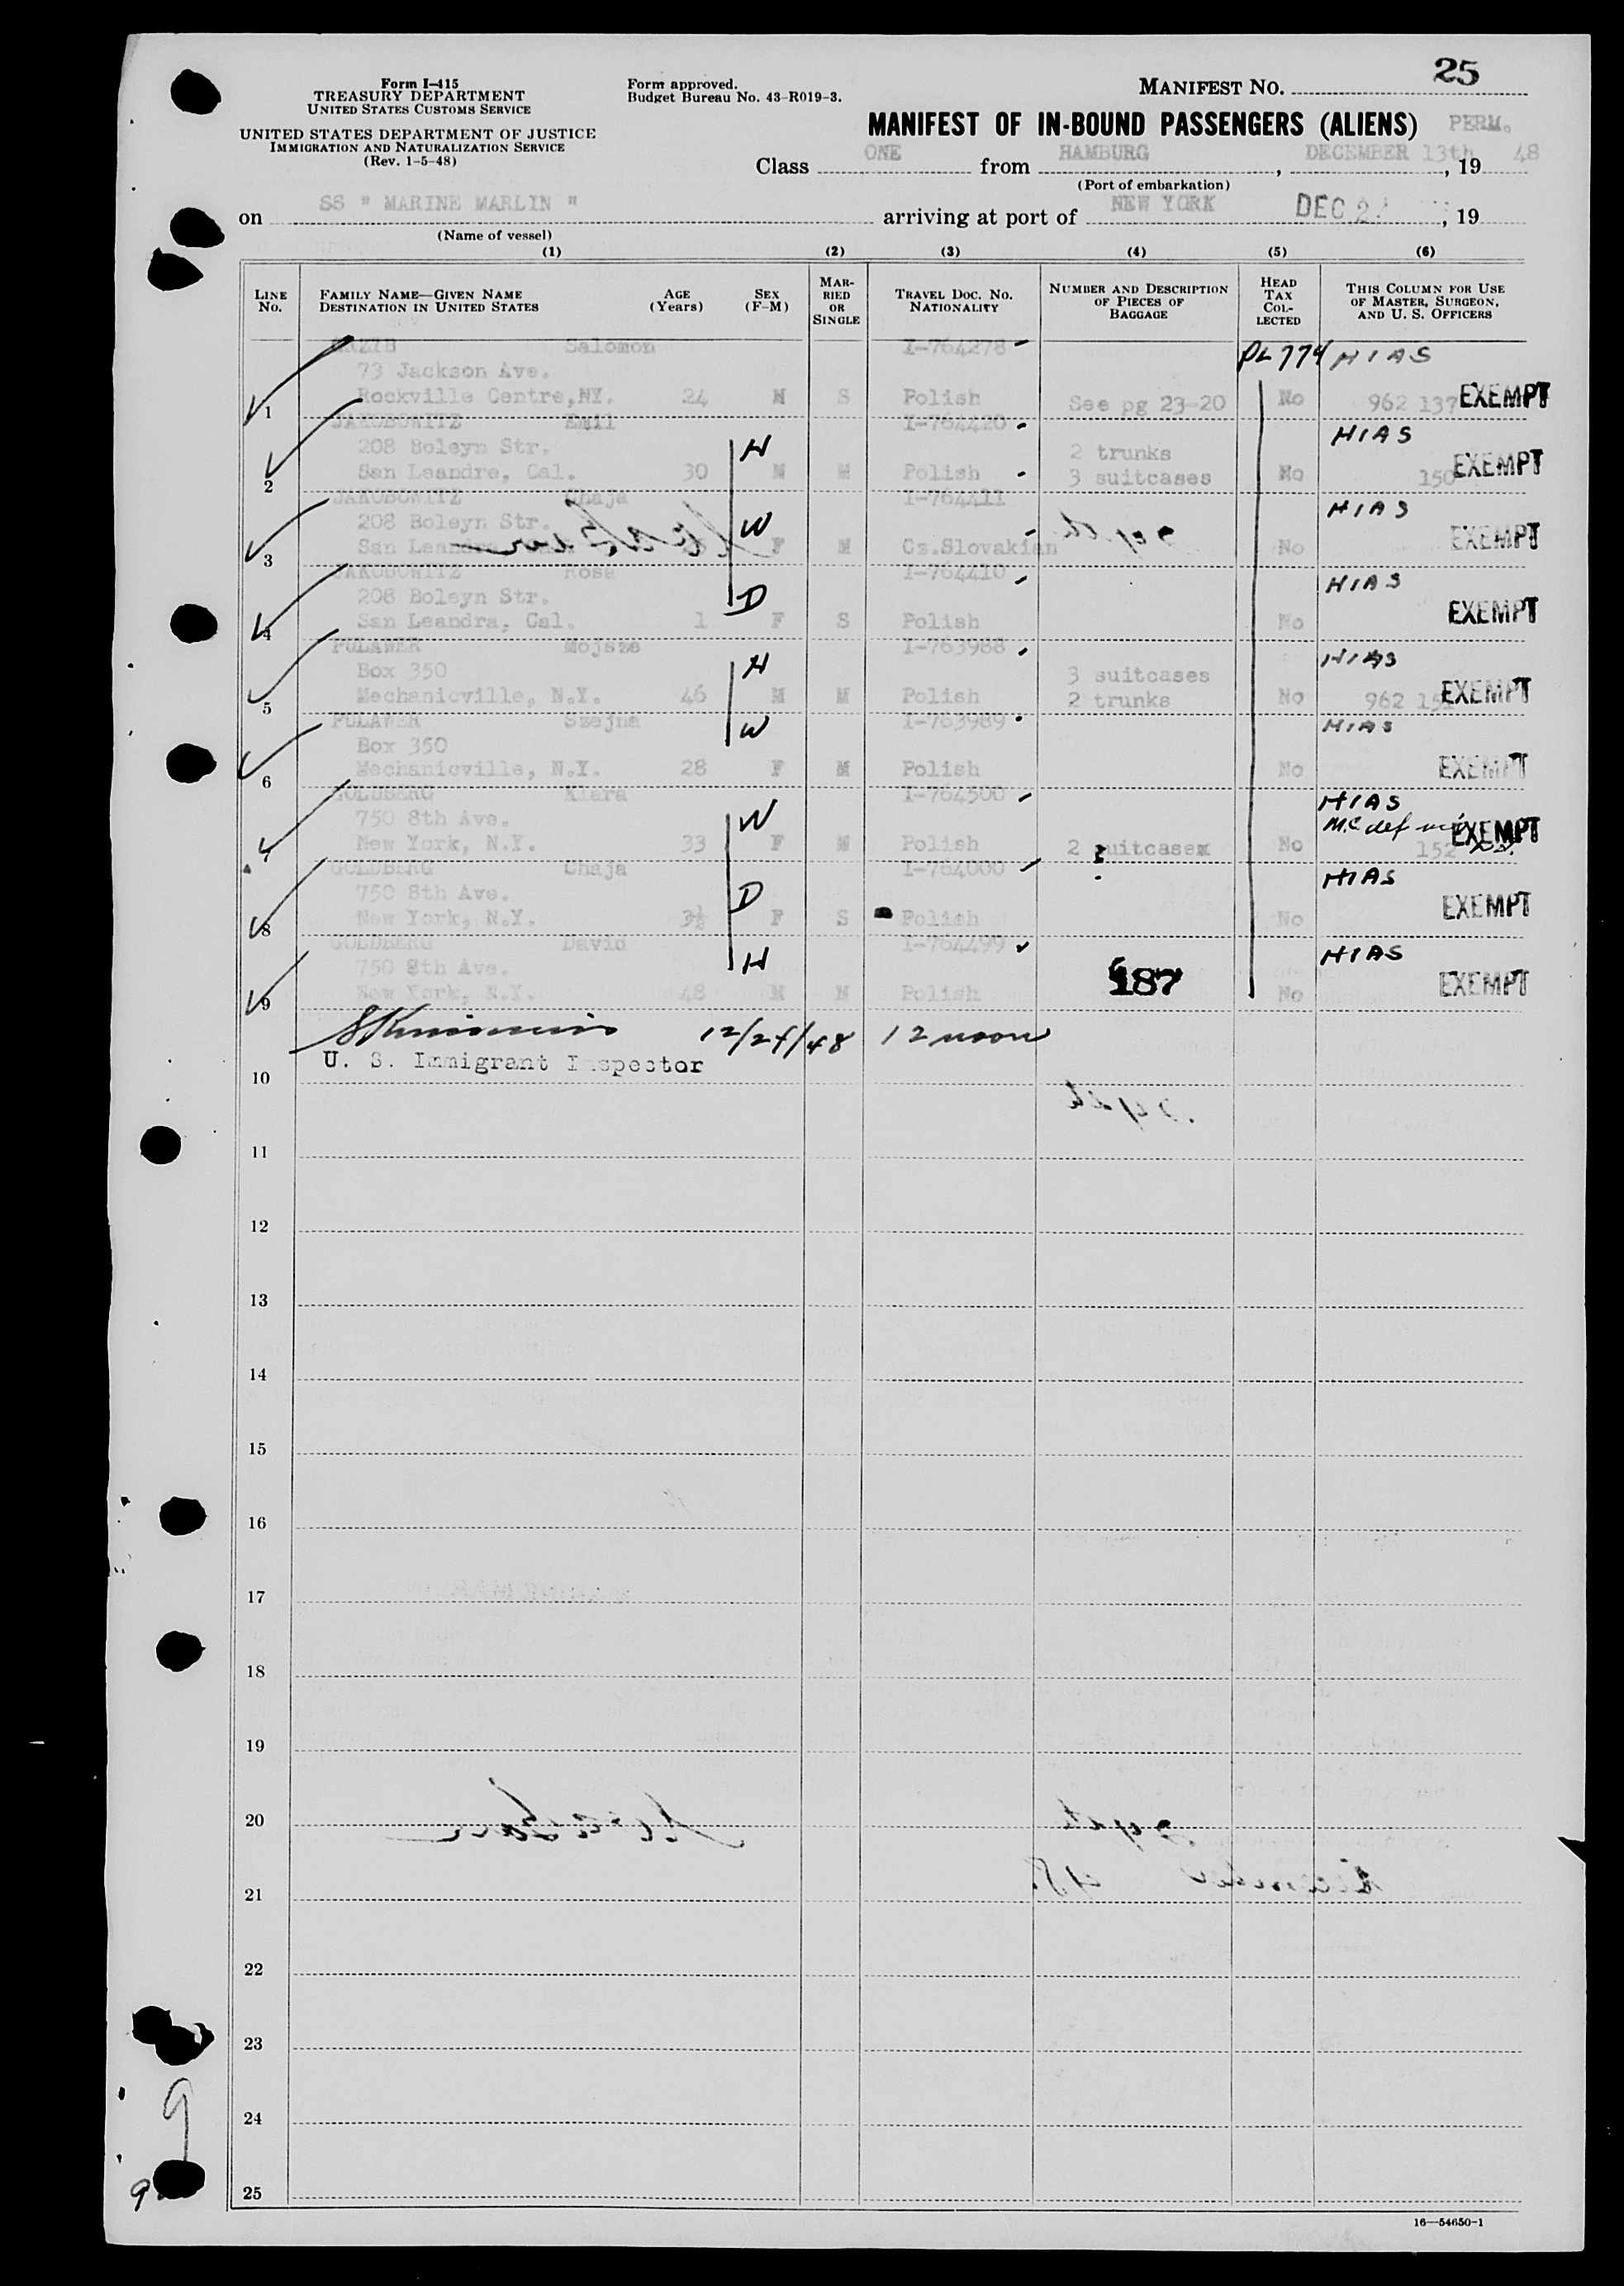 Form I-415
TREASURY DEPARTMENT
UNITED STATES CUSTOMS SERVICE
UNITED STATES DEPARTMENT OF JUSTICE
IMMIGRATION AND NATURALIZATION SERVICE
(Rev. 1-5-48)
Form approved.
Budget Bureau No. 43-R019-3.
MANIFEST NO. 25
MANIFEST OF IN-BOUND PASSENGERS (ALIENS) PERM.
Class ONE from HAMBURG, DECEMBER 13th, 19 48
(Port of embarkation)
on SS " MARINE MARLIN " arriving at port of NEW YORK DEC 2, 19
(Name of vessel)
(1) (2) (3) (4) (5) (6)
LINE No. FAMILY NAME—GIVEN NAME DESTINATION IN UNITED STATES AGE (Years) SEX (F-M) MARRIED OR SINGLE TRAVEL DOC. NO. NATIONALITY NUMBER AND DESCRIPTION OF PIECES OF BAGGAGE HEAD TAX COLLECTED THIS COLUMN FOR USE OF MASTER, SURGEON, AND U. S. OFFICERS
Salomon I-764278 PL 774 HIAS
73 Jackson Ave.
1 Rockville Centre, NY. 24 M S Polish See pg 23-20 No 962 137 EXEMPT
JAKOBOWITZ Emil I-764420 HIAS
208 Boleyn Str. H 2 trunks
2 San Leandre, Cal. 30 M M Polish 3 suitcases No 150 EXEMPT
JAKOBOWITZ Chaja I-764411 HIAS
208 Boleyn Str. W
3 San Leandra F M Cz.Slovakian No EXEMPT
JAKOBOWITZ Rosa I-764410 HIAS
208 Boleyn Str. D
4 San Leandra, Cal. 1 F S Polish No EXEMPT
FULAWER Mojsze I-763988 HIAS
Box 350 H 3 suitcases
5 Mechanicville, N.Y. 46 M M Polish 2 trunks No 962 151 EXEMPT
FULAWER Szejna I-763989 HIAS
Box 350 W
6 Mechanicville, N.Y. 28 F M Polish No EXEMPT
GOLDBERG Klara I-764500 HIAS
750 8th Ave. W M.C def
7 New York, N.Y. 33 F M Polish 2 suitcases No 152 EXEMPT
GOLDBERG Chaja I-764000 HIAS
750 8th Ave. D
8 New York, N.Y. 3½ F S Polish No EXEMPT
GOLDBERG David I-764499 HIAS
750 8th Ave. H
9 New York, N.Y. 48 M M Polish 187 No EXEMPT
12/24/48 12 noon
U. S. Immigrant Inspector
10
11
12
13
14
15
16
17
18
19
20
21
22
23
24
25
9
9
16—54650-1